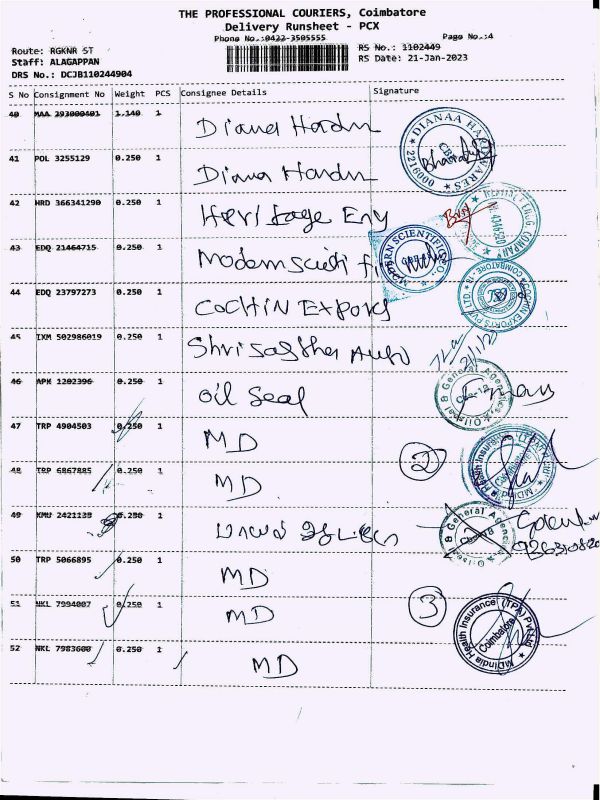 THE PROFESSIONAL COURIERS, Coimbatore
Delivery Runsheet - PCX
Phone No.:0422-3505555
Page No.:4
Route: RGKNR ST
RS No.: 1102449
Staff: ALAGAPPAN
RS Date: 21-Jan-2023
DRS No.: DCJB110244904
S No Consignment No Weight PCS Consignee Details Signature
40 MAA 393000401 1.140 1 Diana Hardw
DIANAA HARDWARES
41 POL 3255129 0.250 1 Diana Hardw
42 HRD 366341290 0.250 1 Heritage Eng
43 EDQ 21464715 0.250 1 Modern scienti fi
MODERN SCIENTIFIC CO.
44 EDQ 23797273 0.250 1 COCHIN EXPORTS
COCHIN EXPORTS PVT LTD
45 IXM 502986019 0.250 1 Shri sastha Auto
46 APN 1202396 0.250 1 Oil Seal
Oilseal & General Agencies
47 TRP 4904503 0.250 1 MD
2
48 TRP 6867885 0.250 1 MD
49 KMU 2421139 0.250 1
Oilseal & General Agencies
50 TRP 5066895 0.250 1 MD
51 NKL 7994007 0.250 1 MD
3
MDIndia Health Insurance (TPA) Pvt Ltd
Coimbatore
52 NKL 7983600 0.250 1 MD